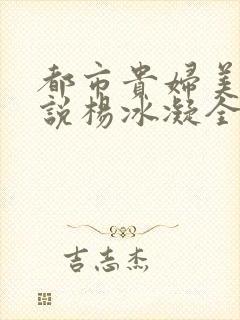 都市貴婦美
說楊冰凝全
吉志杰